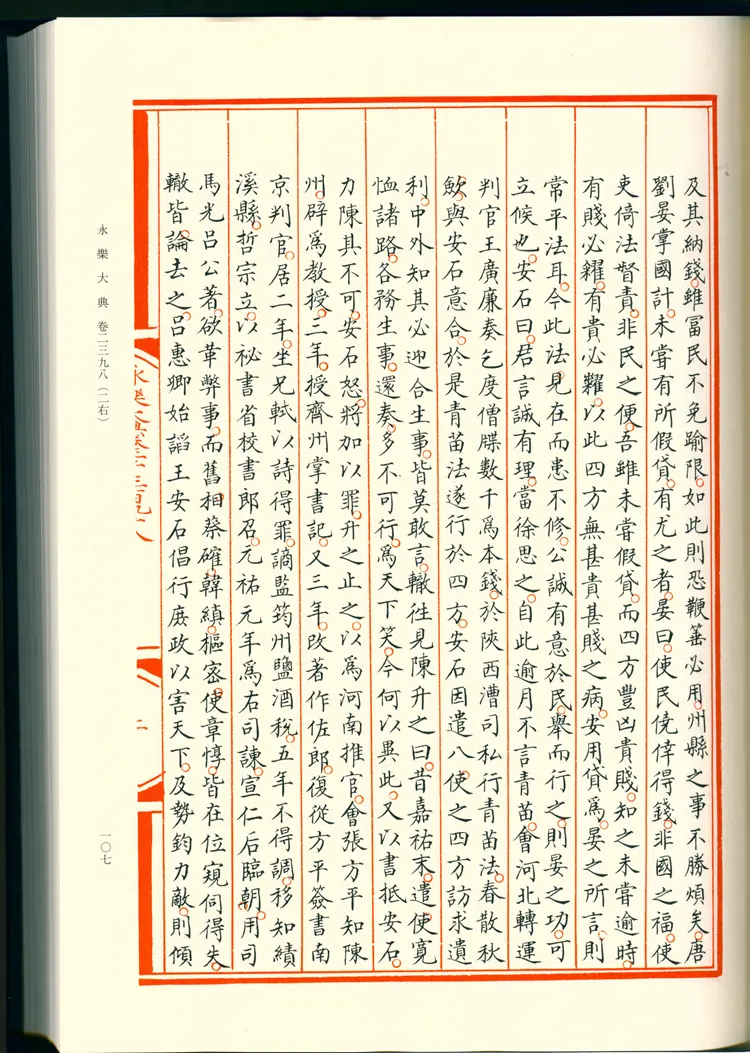 及其納錢。雖冨民不免踰限。如此則恐鞭箠必用。州縣之事不勝煩矣。唐
劉晏掌國計。未甞有所假貸。有尤之者。晏曰。使民僥倖得錢。非國之福。使
吏倚法督責。非民之便。吾雖未甞假貸。而四方豐凶貴賤。知之未甞逾時。
有賤必糴。有貴必糶。以此四方無甚貴甚賤之病。安用貸為。晏之所言。則
常平法耳。今此法見在而患不修。公誠有意於民。舉而行之。則晏之功。可
立俟也。安石曰。君言誠有理。當徐思之。自此逾月不言青苗。會河北轉運
判官王廣廉奏乞度僧牒數千為本錢。於陝西漕司私行青苗法。春散秋
歛。與安石意合。於是青苗法遂行於四方。安石因遣八使之四方訪求遺
利。中外知其必迎合生事。皆莫敢言。轍往見陳升之曰。昔嘉祐末。遣使寛
恤諸路。各務生事。還奏。多不可行。為天下笑。今何以異此。又以書抵安石。
力陳其不可。安石怒。將加以罪。升之止之。以為河南推官。會張方平知陳
州。辟為教授。三年。授齊州掌書記。又三年。改著作佐郎。復從方平簽書南
京判官。居二年。坐兄軾以詩得罪。謫監筠州鹽酒稅。五年不得調。移知績
溪縣。哲宗立。以祕書省校書郎召。元祐元年為右司諫。宣仁后臨朝。用司
馬光呂公著。欲革弊事。而舊相蔡確韓縝。樞密使章惇。皆在位窺伺得失。
轍皆論去之。呂惠卿始謟王安石倡行虐政以害天下。及勢鈞力敵。則傾
永樂大典卷二千三百九十八
二
永樂大典 卷二三九八（二右）
一〇七